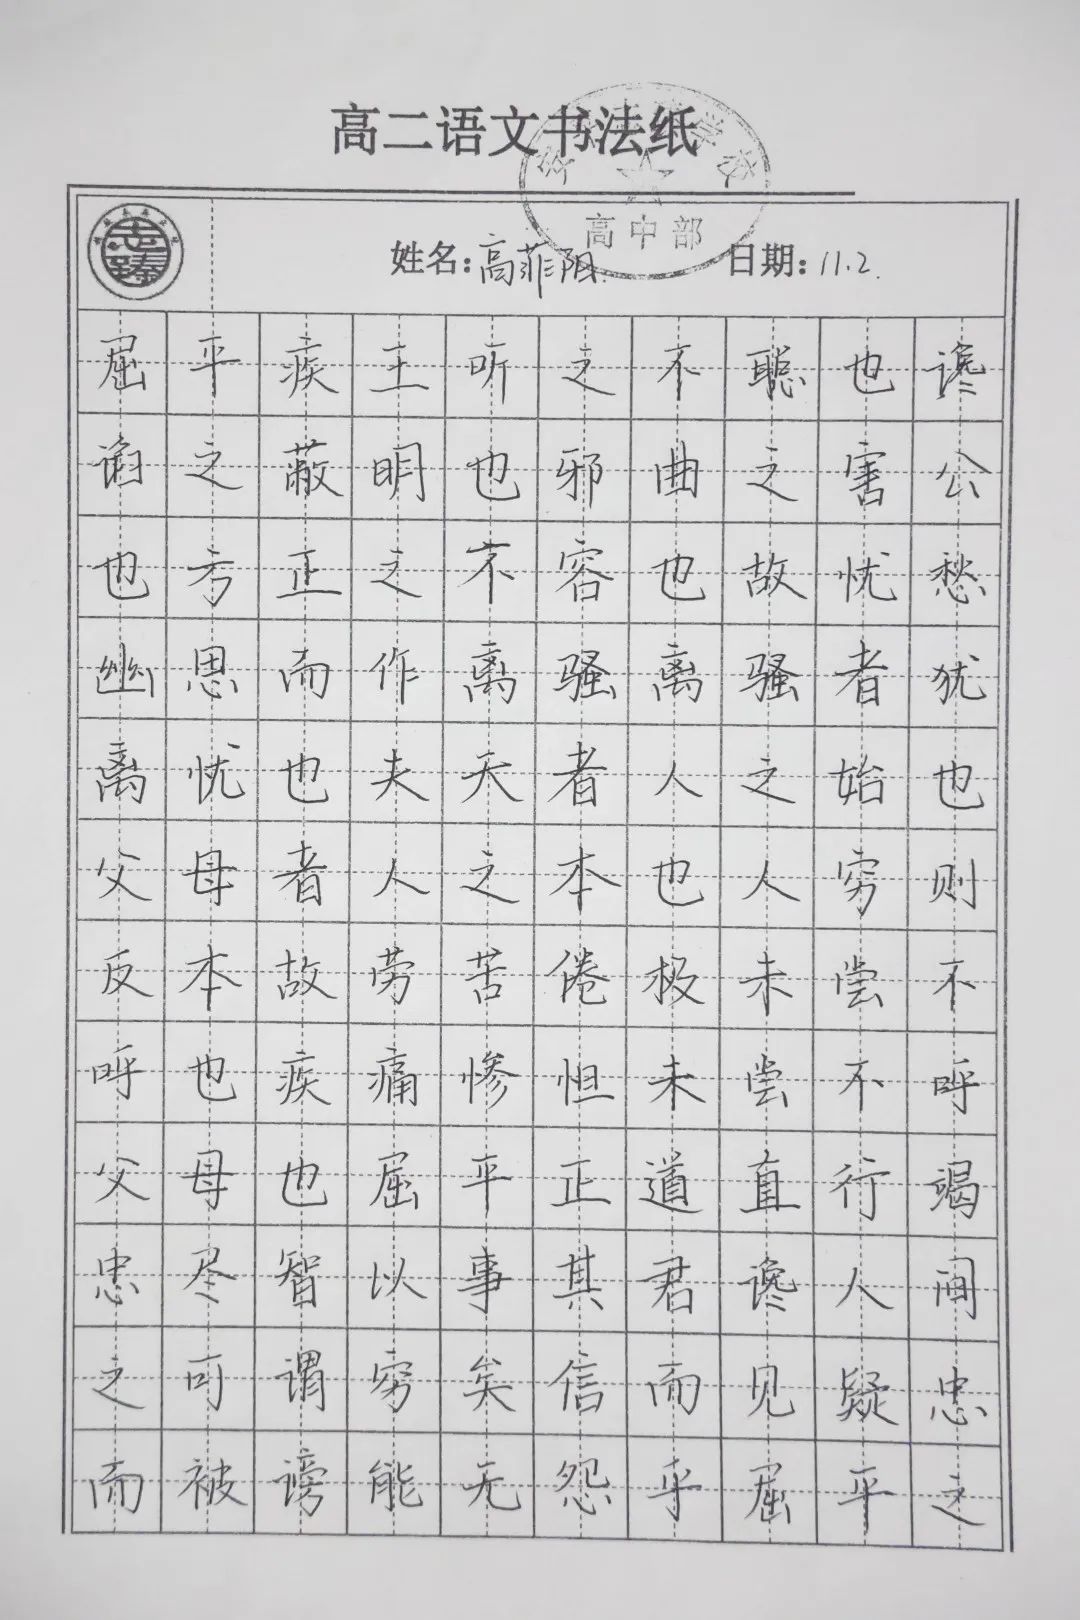 高二语文书法纸
高中部
姓名：高菲阳 日期：11.2.
屈平疾王听之不聪也谗
谄之蔽明也邪曲之害公
也方正之不容也故忧愁
幽思而作离骚离骚者犹
离忧也夫天者人之始也
父母者人之本也人穷则
反本故劳苦倦极未尝不
呼也疾痛惨怛未尝不呼
父母也屈平正道直行竭
忠尽智以事其君谗人间
之可谓穷矣信而见疑忠
而被谤能无怨乎屈平之